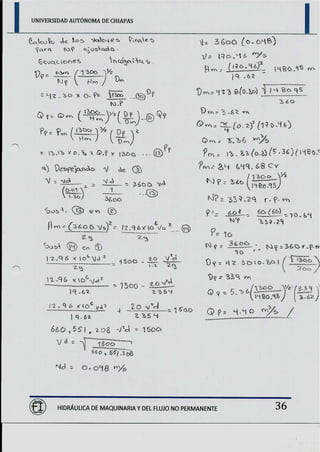 UNIVERSIDAD AUTÓNOMA DE CHIAPAS
Calculo de los valores Finales
Para NP ajustada.
Ecuaciones Incógnitas.
Dp = Nm/Np (1300/Hm)½ Dm
= 42.30 x 0.80 √1300/N.P
Qp = Qm (1300/Hm)½ (Dp/Dm)² Qp
Pp = Pm (1300/Hm)½ (Dp/Dm)²
= 13.13 x 0.8 x Q.P x 1300 Pp
a) Despejando V de
3600 Vd
Sust. en
Hm = (3600 Vd)²/2g = 12.96 x 10⁶ Vd²/2g
Sust en
12.96 x 10⁶ Vd²/2g = 1500 - 20/1.2 V²d/2g
12.96 x 10⁶ Vd²/19.62 = 1300 - 20 Vd²/2354
12.96 x 10⁶ Vd²/19.62 + 20 V²d/2354 = 1500
660,551.208 V²d = 1500
Vd = √1500/660,551.208
Vd = 0.048 m/s
V = 3600 (0.048)
V = 170.46 m/s
Hm = (170.46)²/19.62 = 1480.95 m
Dm = 423 8(0.80) √1480.95/360
Dm = 3.62 m
Qm = π/4 (0.2)² (170.46)
Qm = 5.36 m³/s
Pm = 84 649.68 CV
Np = 360 (1300/1480.95)½
NP = 339.29 r.p.m
P' = 60f/Np = 60(60)/339.29 = 10.64
P = 10
Np = 3600/10 ∴ Np = 360 r.p.m
Dp = 339 m
Qp = 5.36 (1300/1480.95)½ (3.39/3.62)²
Qp = 4.40 m³/s
HIDRÁULICA DE MAQUINARIA Y DEL FLUJO NO PERMANENTE
36